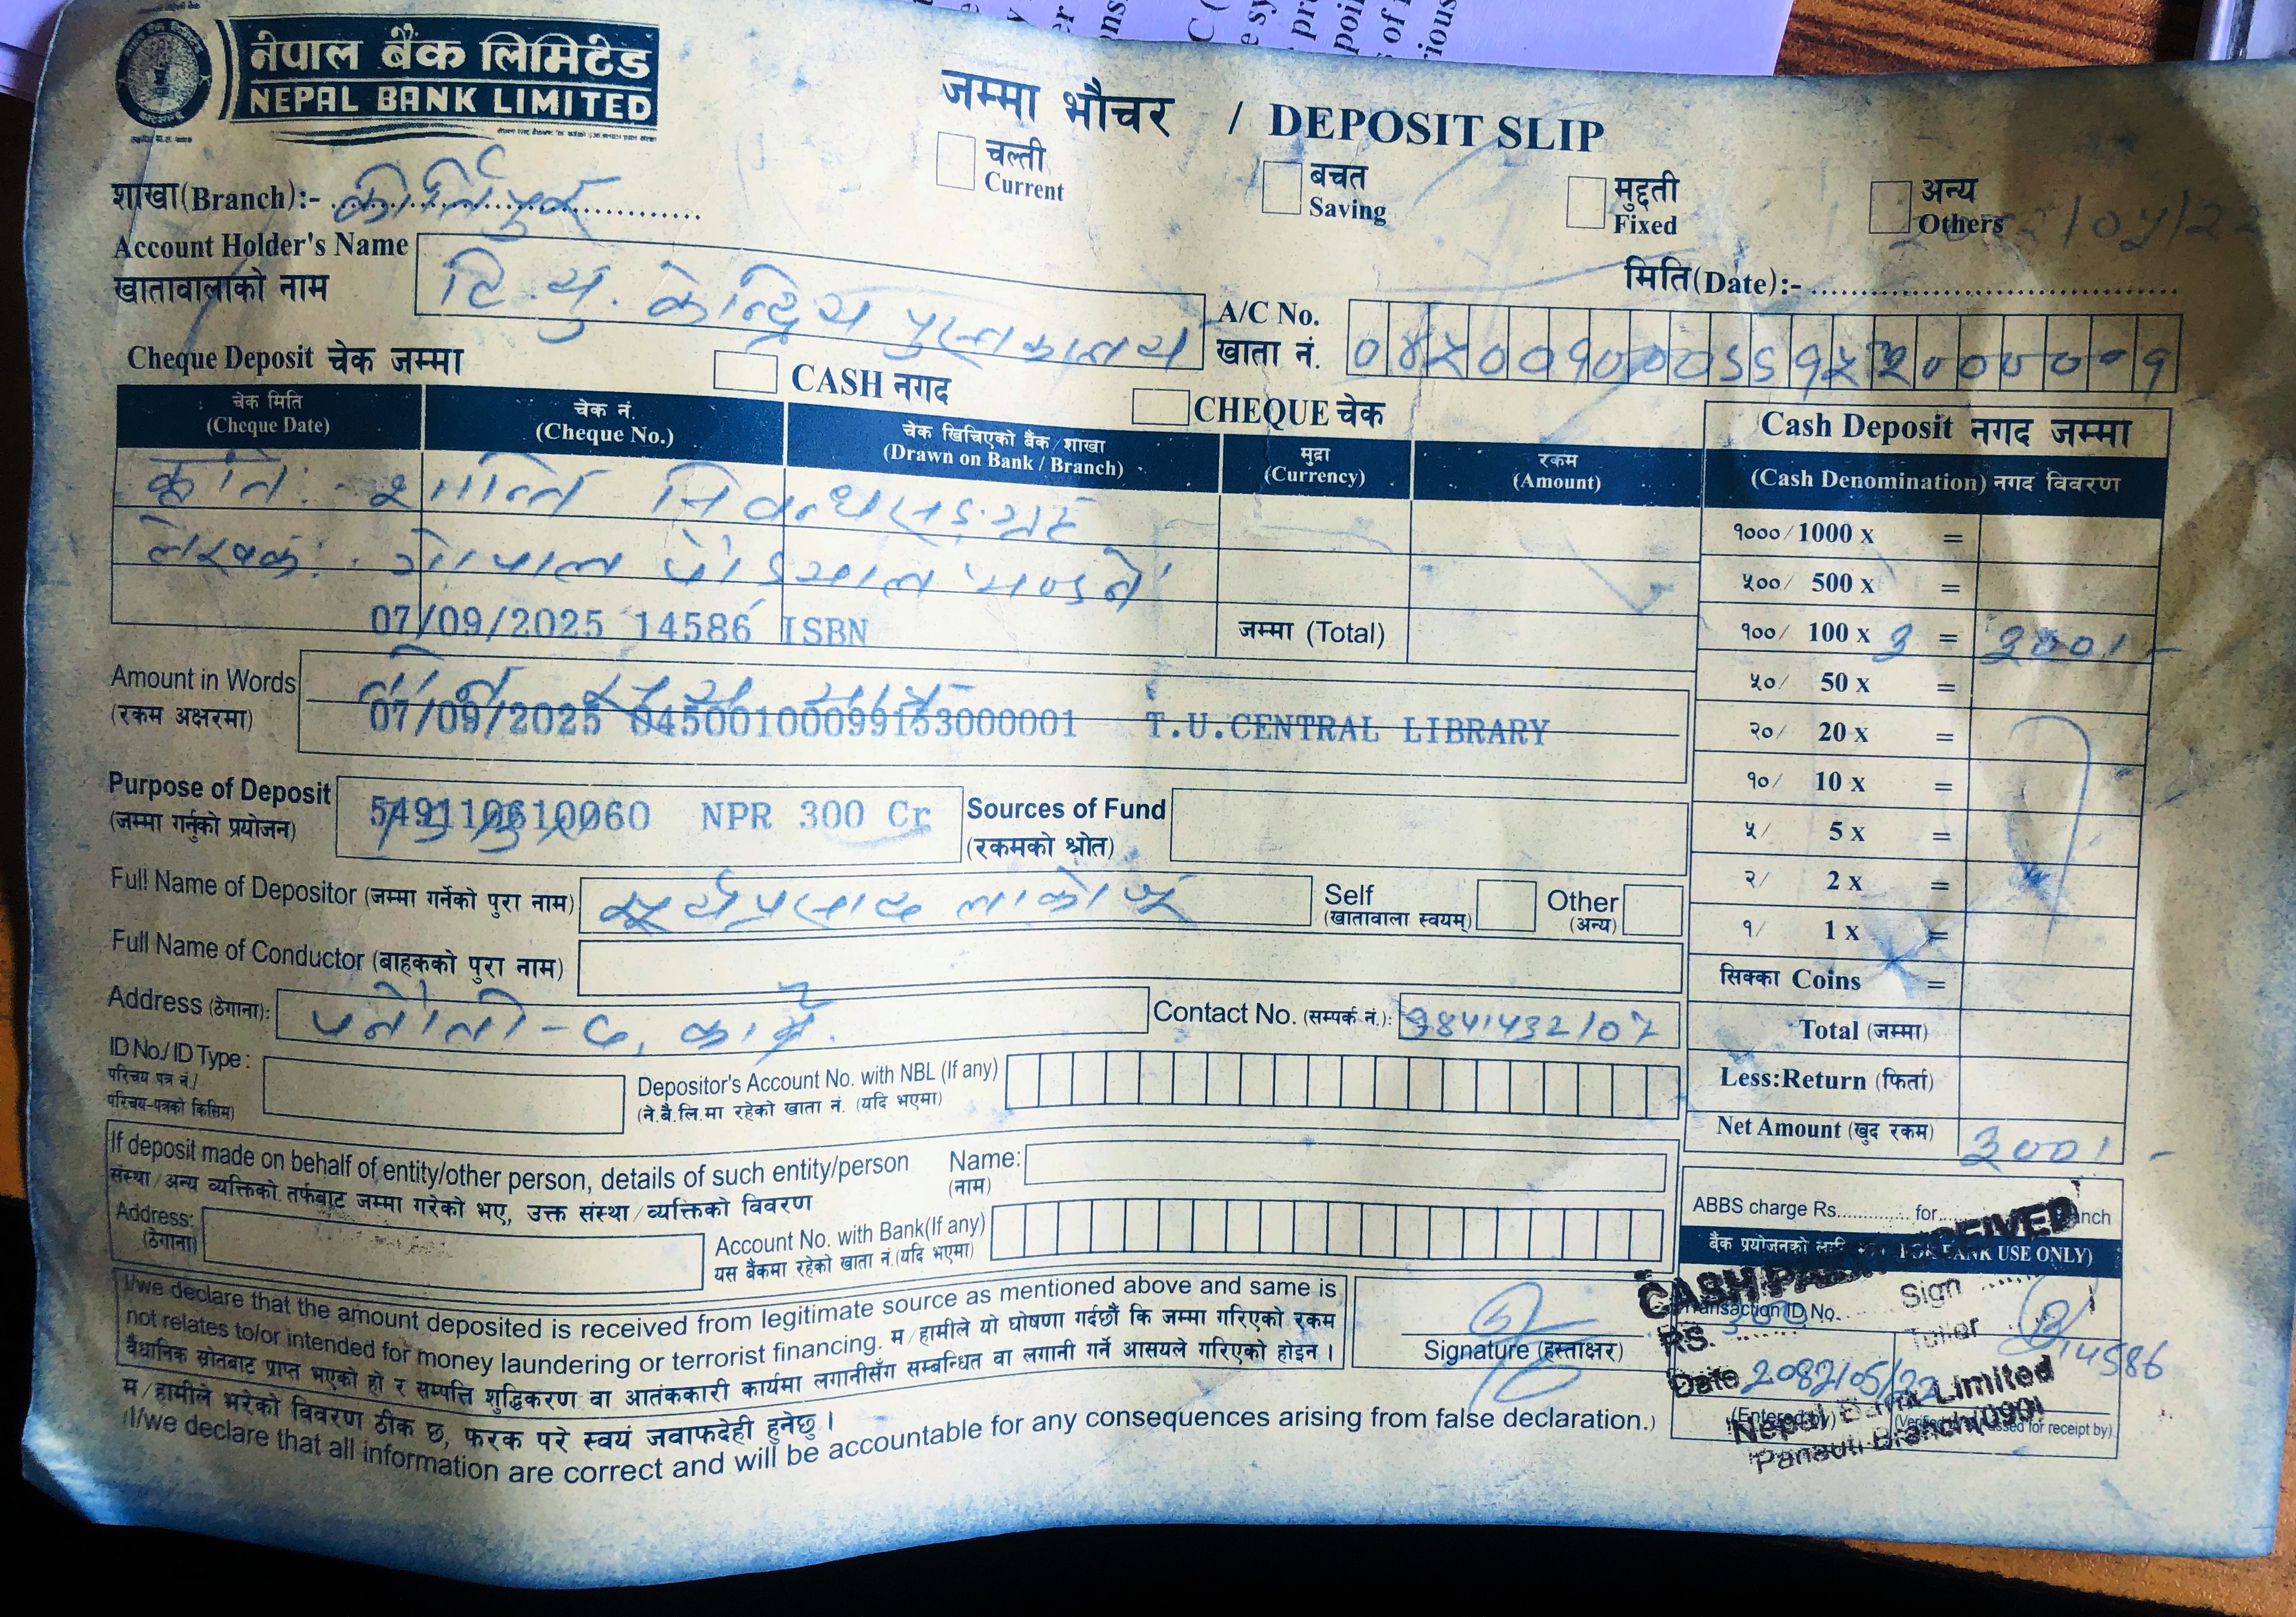 नेपाल बैंक लिमिटेड
NEPAL BANK LIMITED
जम्मा भौचर / DEPOSIT SLIP
चल्ती
Current
बचत
Saving
मुद्दती
Fixed
अन्य
Others
शाखा(Branch):- कीर्तिपुर
2082/05/22
मिति(Date):-
Account Holder's Name
खातावालाको नाम
टि.यु. केन्द्रिय पुस्तकालय
A/C No.
खाता नं.
Cheque Deposit चेक जम्मा
CASH नगद
CHEQUE चेक
चेक मिति
(Cheque Date)
चेक नं.
(Cheque No.)
चेक खिचिएको बैंक/शाखा
(Drawn on Bank / Branch)
मुद्रा
(Currency)
रकम
(Amount)
Cash Deposit नगद जम्मा
(Cash Denomination) नगद विवरण
कृति:- शान्ति निबन्धसङ्ग्रह
लेखक: गोपाल पौड्याल
07/09/2025 14586 ISBN
जम्मा (Total)
१०००/ 1000 x =
५००/ 500 x =
१००/ 100 x 3 = 300/-
५०/ 50 x =
२०/ 20 x =
१०/ 10 x =
५/ 5 x =
२/ 2 x =
१/ 1 x =
सिक्का Coins =
Total (जम्मा)
Less:Return (फिर्ता)
Net Amount (खुद रकम) 300/-
Amount in Words
(रकम अक्षरमा)
07/09/2025 04500100099153000001 T.U.CENTRAL LIBRARY
Purpose of Deposit
(जम्मा गर्नुको प्रयोजन)
NPR 300 Cr
Sources of Fund
(रकमको श्रोत)
Full Name of Depositor (जम्मा गर्नेको पुरा नाम) सूर्यप्रसाद लाकोजू
Self
(खातावाला स्वयम्)
Other
(अन्य)
Full Name of Conductor (बाहकको पुरा नाम)
Address (ठेगाना): पनौती-८, काभ्रे
Contact No. (सम्पर्क नं.): 9841432107
ID No./ ID Type :
परिचय पत्र नं./
परिचय-पत्रको किसिम)
Depositor's Account No. with NBL (If any)
(ने.बै.लि.मा रहेको खाता नं. (यदि भएमा)
If deposit made on behalf of entity/other person, details of such entity/person
संस्था/अन्य व्यक्तिको तर्फबाट जम्मा गरेको भए, उक्त संस्था/व्यक्तिको विवरण
Name:
(नाम)
Address:
(ठेगाना)
Account No. with Bank(If any)
यस बैंकमा रहेको खाता नं.(यदि भएमा)
ABBS charge Rs.............. for
I/we declare that the amount deposited is received from legitimate source as mentioned above and same is
not relates to/or intended for money laundering or terrorist financing. म/हामीले यो घोषणा गर्दछौं कि जम्मा गरिएको रकम
वैधानिक स्रोतबाट प्राप्त भएको हो र सम्पत्ति शुद्धिकरण वा आतंककारी कार्यमा लगानीसँग सम्बन्धित वा लगानी गर्ने आसयले गरिएको होइन ।
Signature (हस्ताक्षर)
म/हामीले भरेको विवरण ठीक छ, फरक परे स्वयं जवाफदेही हुनेछु ।
(I/we declare that all information are correct and will be accountable for any consequences arising from false declaration.)
बैंक प्रयोजनको
BANK USE ONLY)
Transaction ID No.
Sign
RS. 300
Teller
14586
Date 2082/05/22
Nepal Bank Limited
Panauti Branch(090)
(Entered by)